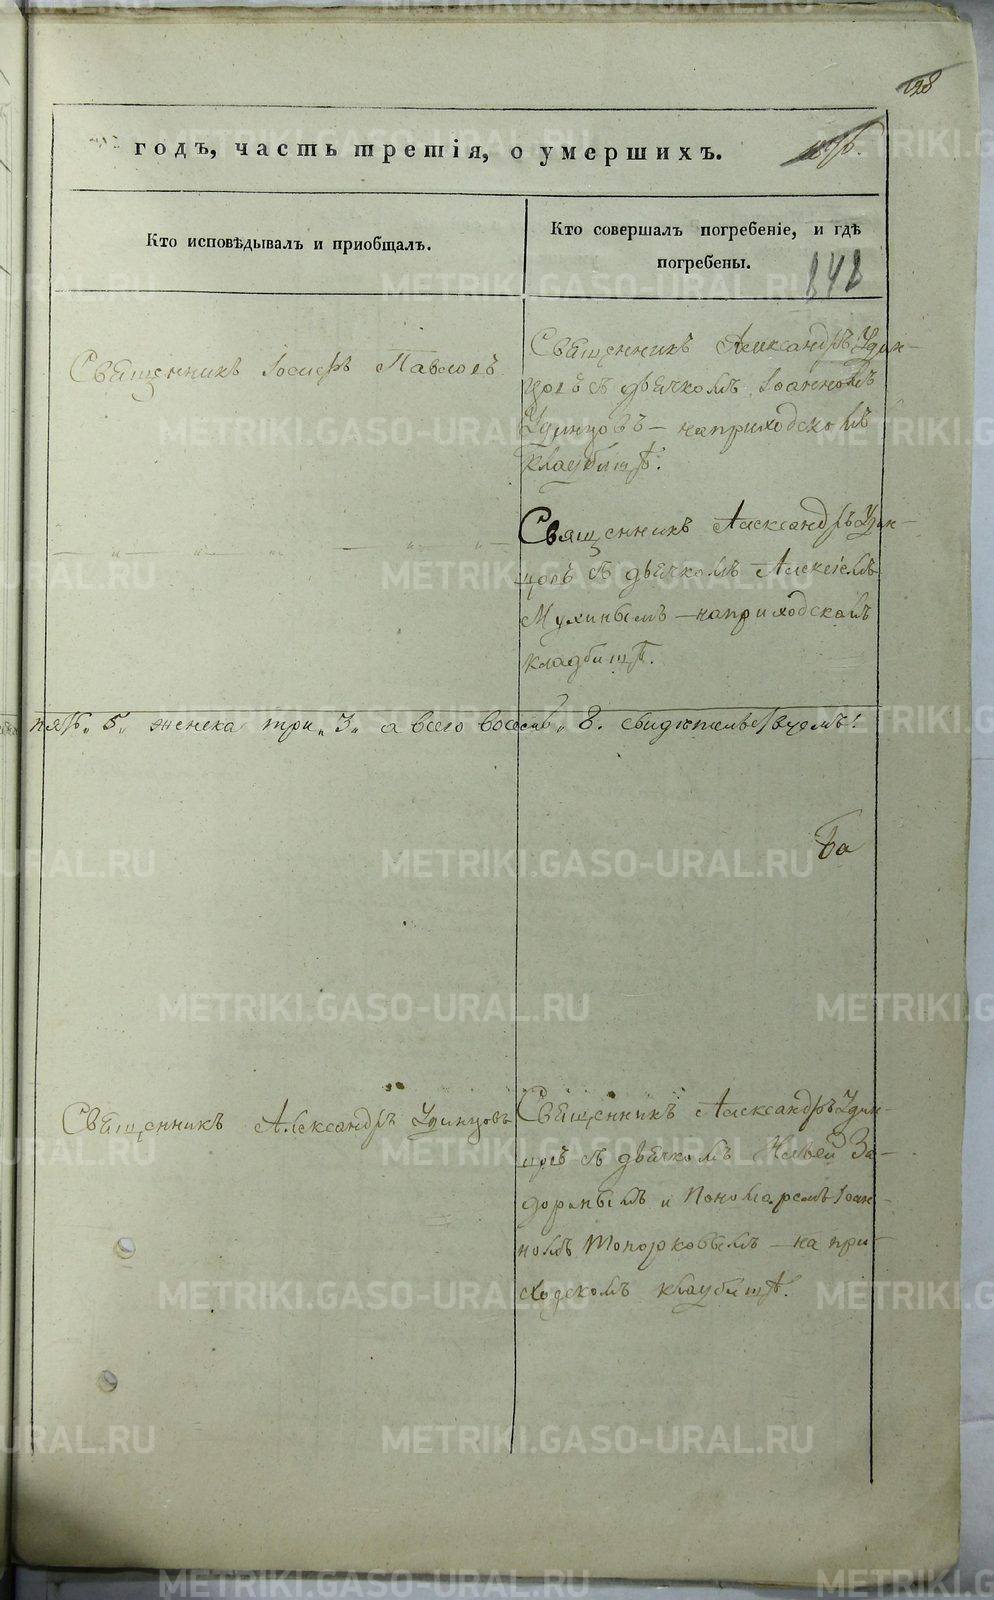 128
годъ, часть третія, о умершихъ.
Кто исповѣдывалъ и приобщалъ.
Кто совершалъ погребеніе, и гдѣ
погребены.
848
Священникъ Іосифъ Павловъ
Священникъ Александръ Удин-
цовъ съ дьячкомъ Іоанномъ
Удинцовъ — на приходскомъ
кладбищѣ.
Священникъ Александръ Удин-
цовъ съ дьячкомъ Алексіемъ
Мухинымъ — на приходскомъ
кладбищѣ.
пять „5„ женска три „3„ а всего восемь „8. свидѣтельствуемъ:
Священникъ Александръ Удинцовъ
Священникъ Александръ Удин-
цовъ съ дьячкомъ За-
дорнымъ и Пономаремъ Іоан-
номъ Топорковымъ — на при-
ходскомъ кладбищѣ.
METRIKI.GASO-URAL.RU